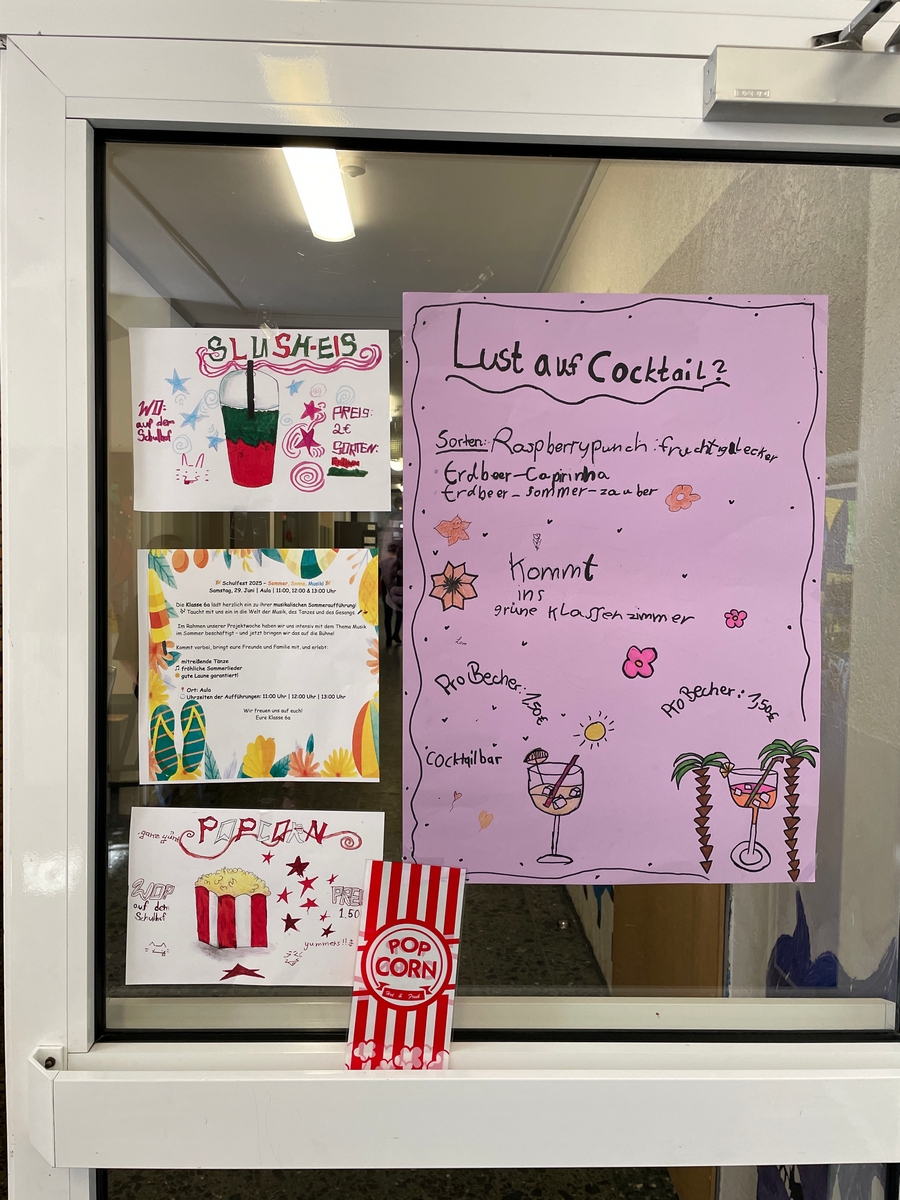 SLUSH-EIS
WO:
auf der
Schulhof
PREIS:
2€
SORTEN:
Schulfest 2025 – Sommer, Sonne, Musik!
Samstag, 29. Juni | Aula | 11:00, 12:00 & 13:00 Uhr
Die Klasse 6a lädt herzlich ein zu ihrer musikalischen Sommeraufführung!
Taucht mit uns ein in die Welt der Musik, des Tanzes und des Gesangs.
Im Rahmen unserer Projektwoche haben wir uns intensiv mit dem Thema Musik
im Sommer beschäftigt – und jetzt bringen wir das auf die Bühne!
Kommt vorbei, bringt eure Freunde und Familie mit, und erlebt:
mitreißende Tänze
fröhliche Sommerlieder
gute Laune garantiert!
Ort: Aula
Uhrzeiten der Aufführungen: 11:00 Uhr | 12:00 Uhr | 13:00 Uhr
Wir freuen uns auf euch!
Eure Klasse 6a
POPCORN
WO?
auf dem
Schulhof
PREI
1.50
yummers!!
POP
CORN
Hot & Fresh
Lust auf Cocktail?
Sorten: Raspberrypunch: fruchtig&lecker
Erdbeer-Capirinha
Erdbeer-sommer-zauber
Kommt
ins
grüne Klassenzimmer
Pro Becher: 1,50€
Pro Becher: 1,50€
Cocktailbar